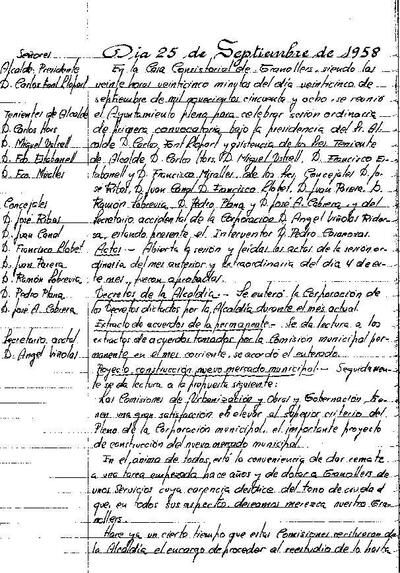 Señores
Alcalde Presidente
D. Carlos Font Llopart
Tenientes de Alcalde
D. Carlos Hors
D. Miguel Vitrell
D. Fco. Estabanell
D. Fco. Miralles
Concejales
D. José Ribas
D. Juan Canal
D. Francisco Llobet
D. Juan Parera
D. Ramón Fabrevia
D. Pedro Plana
D. José A. Cabrera
Secretario acctal
D. Angel
Dia 25 de Septiembre de 1958
En la Casa Consistorial de Granollers, siendo las
veinte horas veinticinco minutos del día veinticinco de
septiembre de mil novecientos cincuenta y ocho, se reunió
el Ayuntamiento pleno para celebrar sesión ordinaria
de primera convocatoria bajo la presidencia del Sr. Al-
calde D. Carlos Font Llopart y asistencia de los Sres. Teniente
de Alcalde D. Carlos Hors, D. Miguel Vitrell, D. Francisco Es-
tabanell y D. Francisco Miralles, de los Sres. Concejales D. Jo-
sé Ribas, D. Juan Canal, D. Francisco Llobet, D. Juan Parera, D.
Ramón Fabrevia, D. Pedro Plana y D. José A. Cabrera, y del
Secretario accidental de la Corporación D. Angel
estando presente el Interventor D. Pedro Casanovas.
Actas.- Abierta la sesión y leidas las actas de la sesion or-
dinaria del mes anterior y extraordinaria del dia 4 de es-
te mes, fueron aprobadas.
Decretos de la Alcaldía.- Se enteró la Corporación de
los Decretos dictados por la Alcaldia durante el mes actual.
Extracto de acuerdos de la permanente.- Se da lectura a los
extractos de acuerdos tomados por la Comisión municipal per-
manente en el mes corriente, se acordó el enterado.
Proyecto construcción nuevo mercado municipal.- Seguidamen-
te se da lectura a la propuesta siguiente:
Las Comisiones de Urbanización y Obras y Gobernación, tie-
nen una gran satisfacción el elevar al superior criterio del
Pleno de la Corporación municipal, el importante proyecto
de construcción del nuevo mercado municipal.
En el ánimo de todos, está la conveniencia de dar remate
a una tarea empezada hace años y de dotar a Granollers de
unos servicios cuya carencia desdice del tono de ciudad
que, en todos sus aspectos, deseamos merezca nuestro Gra-
nollers.
Hace ya un cierto tiempo que estas Comisiones recibieron de
la Alcaldía, el encargo de proceder al reestudio de lo hasta